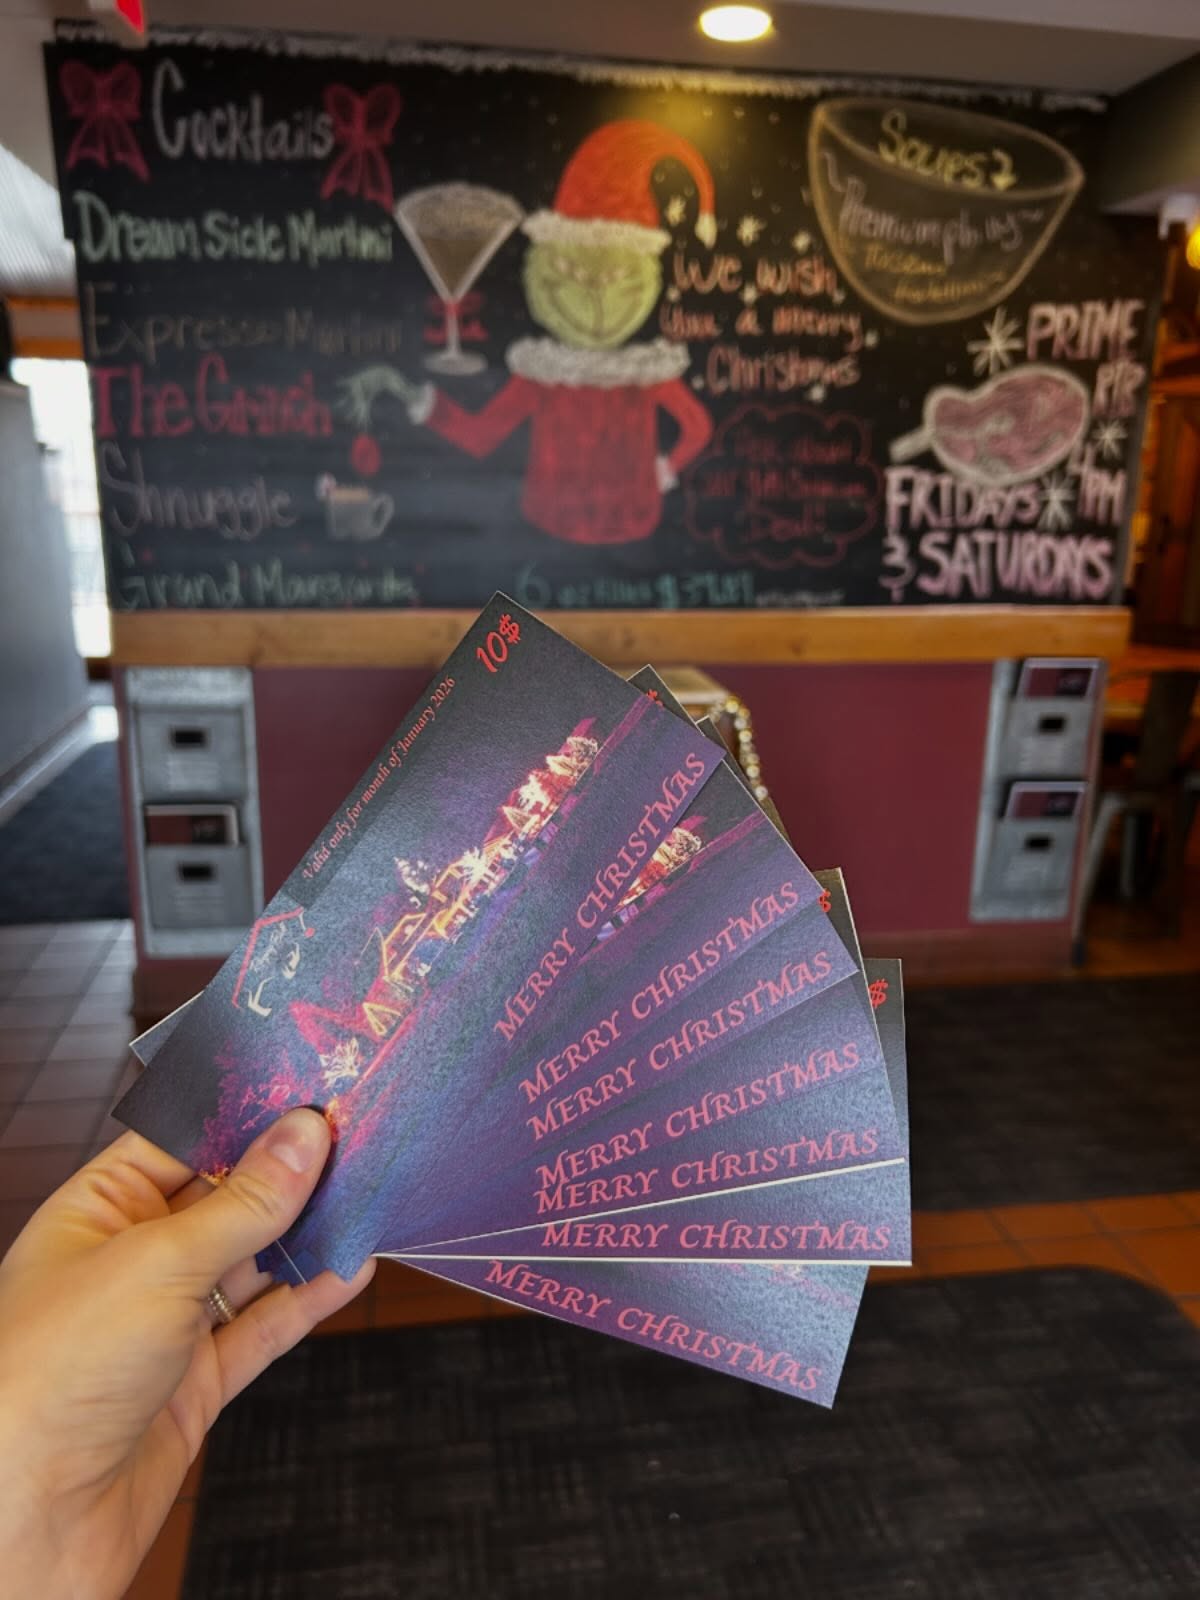 Cocktails
Dream Sicle Martini
Expresso Martini
The Grinch
Shnuggle
Grand Margarita
We wish
you a merry
Christmas
Deal!
6
Soups
PRIME
RIB
4PM
FRIDAYS
& SATURDAYS
10$
Valid only for month of January 2026
MERRY CHRISTMAS
$
MERRY CHRISTMAS
MERRY CHRISTMAS
$
MERRY CHRISTMAS
MERRY CHRISTMAS
$
MERRY CHRISTMAS
MERRY CHRISTMAS